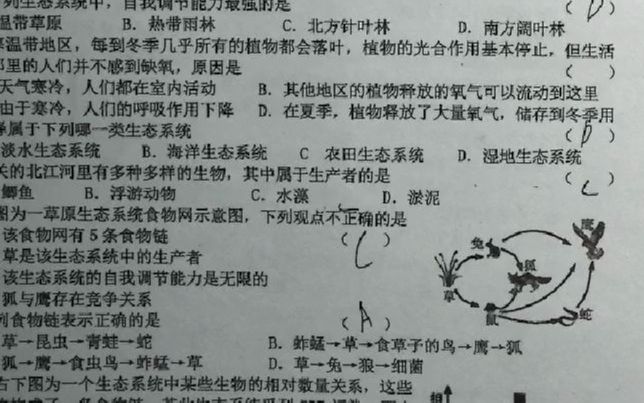 列生态系统中，自我调节能力最强的是 (D)
温带草原 B. 热带雨林 C. 北方针叶林 D. 南方阔叶林
寒温带地区，每到冬季几乎所有的植物都会落叶，植物的光合作用基本停止，但生活
那里的人们并不感到缺氧，原因是 ( )
天气寒冷，人们都在室内活动 B. 其他地区的植物释放的氧气可以流动到这里
由于寒冷，人们的呼吸作用下降 D. 在夏季，植物释放了大量氧气，储存到冬季用
属于下列哪一类生态系统 (D)
淡水生态系统 B. 海洋生态系统 C 农田生态系统 D. 湿地生态系统
关的北江河里有多种多样的生物，其中属于生产者的是 (C)
鲫鱼 B. 浮游动物 C. 水藻 D. 淤泥
图为一草原生态系统食物网示意图，下列观点不正确的是
该食物网有5条食物链 (C)
草是该生态系统中的生产者
该生态系统的自我调节能力是无限的
狐与鹰存在竞争关系
兔 狐 鹰 草 鼠 蛇
列食物链表示正确的是 (A)
草→昆虫→青蛙→蛇 B. 蚱蜢→草→食草子的鸟→鹰→狐
狐→鹰→食虫鸟→蚱蜢→草 D. 草→兔→狼→细菌
右下图为一个生态系统中某些生物的相对数量关系，这些
相